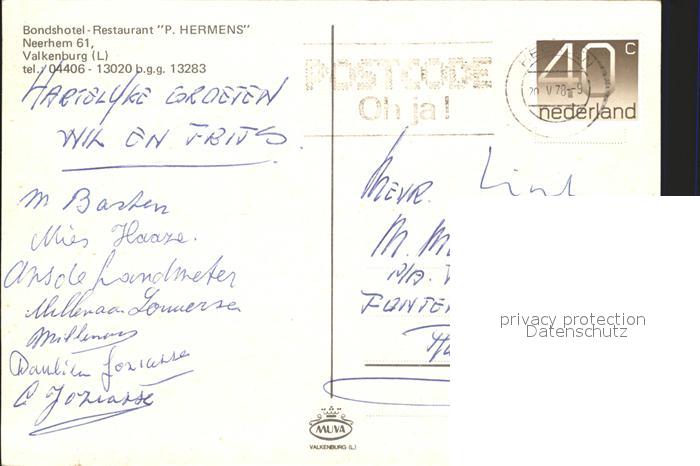 Bondshotel-Restaurant "P. HERMENS"
Neerhem 61,
Valkenburg (L)
tel. 04406 - 13020 b.g.g. 13283
HARTELIJKE GROETEN
WIL EN FRITS.
M Basten
Mies Haaze.
Ans de Landmeter
Millenaar
Paulien Joziasse
C Joziasse
POSTCODE
Oh ja!
20 V 78-9
40 c
nederland
MEVR.
M. M
P/A.
FONTE
MUVA
VALKENBURG (L.)
privacy protection
Datenschutz